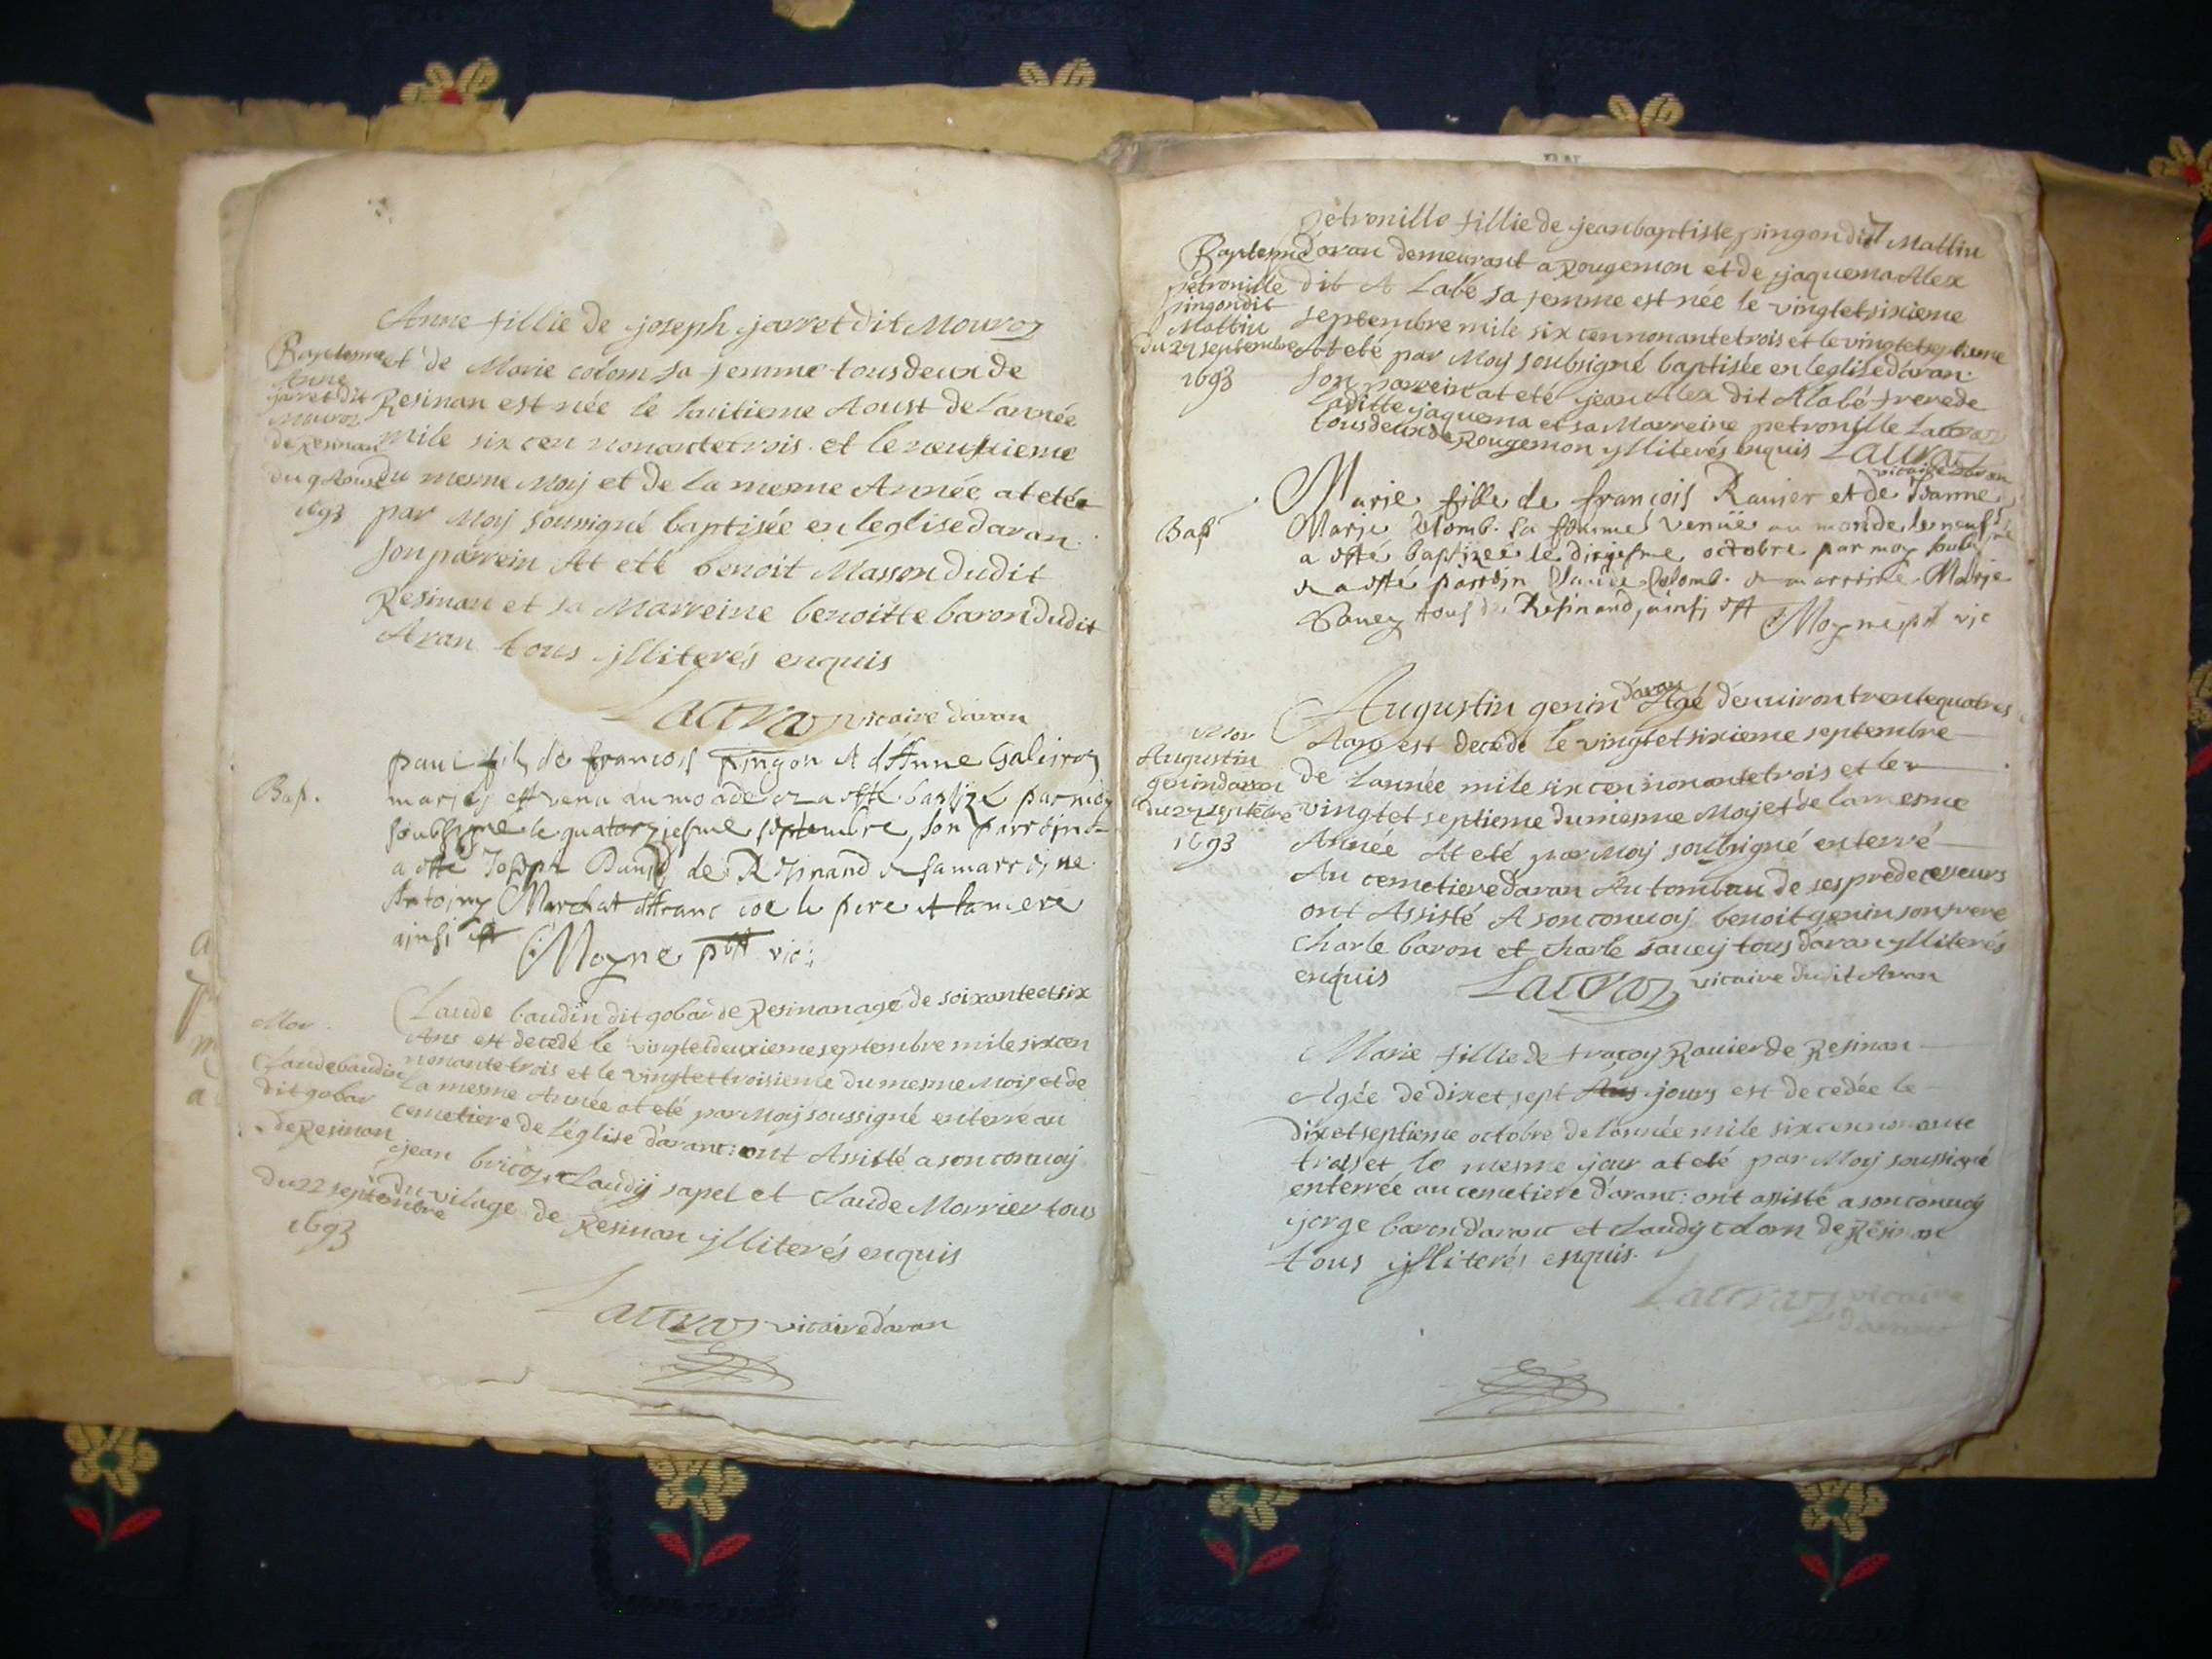 Anne fillie de joseph jarret dit Mouroz
Baptesme
Anne
jarret dit
Mouroz
de Resinan
du 9 Aoust
1693
et de Marie colom sa femme tous deux de
Resinan est née le huitieme Aoust de l'année
mile six cen nonante trois et le neufieme
du mesme Moy et de la mesme Année at etée
par Moy soussigné baptisée en leglise daran
son parrein At eté benoit Masson dudit
Resinan et sa Marreine benoitte baron dudit
Aran tous jlliterés enquis
Lacroz vicaire daran
Bap.
paul fils de francois pingon et d'Anne
mariés est venu au monde et a esté baptizé par moy
soubsigné le quatorziesme septembre, son parroin
a esté Joseph de Resinand & sa marroine
Marchat le pere et la mere
ainsi est Moyne pbtt vic:
Mor
Claude baudin
dit gobar
de Resinan
du 22 septembre
1693
Claude baudin dit gobar de Resinan agé de soixante et six
Ans est decedé le vingt et deuxieme septembre mile six cen
nonante trois et le vingt et troisieme du mesme Moy et de
la mesme Année at eté par Moy soussigné enterre au
cemetiere de l'église d'aranc: ont Assisté a son convoy
jean Claudy sapel et Claude Morrier tous
du vilage de Resinan jlliterés enquis
Lacroz vicaire d'aran
7
petronille fillie de jean baptiste pingon dit Mathiu
Baptesme
petronille
pingon dit
Mathiu
du 27 septembre
1693
d'aran demeurant a Rougemon et de jaquema Alex
dit A Labé sa femme est née le vingt et sixieme
septembre mile six cen nonante trois et le vingt et septieme
At eté par Moy soubsigné baptisée en leglise d'aran
son parrein at eté jean Alex dit Alabé frere de
laditte jaquema et sa Marreine petronille Lacroz
tous deux de Rougemon jlliterés enquis Lacroz
vicaire daran
Bap
Marie fille de françois Ravier et de
Marie Colomb sa femme venüe au monde le neuf
a esté baptizée le diziesme octobre par moy
& a esté parroin Claude Colomb & marroine Marie
tous de Resinand, ainsi est Moyne pbt vic
Mor
Augustin
genin daran
du 27 septebre
1693
Augustin genin d'aran Agé d'enuiron trente quatres
Ans est decedé le vingt et sixieme septembre
de lannée mile six cen nonante trois et le
vingt et septieme du mesme Moy et de la mesme
Année At eté par Moy soubsigné enterré
Au cemetiere daran Au tombau de ses predecesseurs
ont Assisté A son convoy benoit genin son frere
charle baron et charle sauey tous daran jlliterés
enquis Lacroz vicaire dudit Aran
Marie fillie de fraçoy Rauier de Resinan
Agée de dix et sept Ans jours est decedée le
dix et septieme octobre de l'année mile six cen nonante
trois et le mesme jour at eté par Moy soussigné
enterrée au cemetiere d'aranc: ont assisté a son convoy
jorge baron d'aranc et Claudy Colom de Resinan
tous jlliterés enquis.
Lacroz vicaire
d'aranc